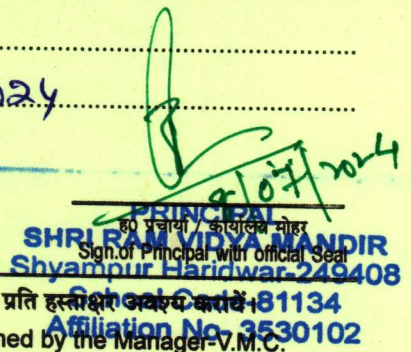 2024
8/07/2024
PRINCIPAL
ह० प्रचार्या / कार्यालय मोहर
SHRI RAM VIDYA MANDIR
Sign.of Principal with official Seal
Shyampur Haridwar-249408
प्रति हस्ताक्षर अवश्य करायें।
School Code-81134
Affiliation No- 3530102
ned by the Manager-V.M.C.